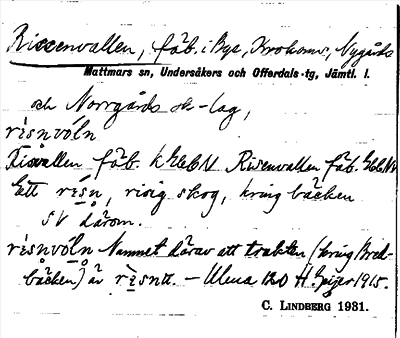 Rissenvallen, fäb. i Bye, Krokoms, Nygårds
Mattmars sn, Undersåkers och Offerdals -tg, Jämtl. l.
och Norrgårds sk-lag,
rìsnvóln
Risåvallen fäb. k Risenvallen fäb.
Ett rìsn, risig skog, kring bäcken
SV därom.
rìsnvóln Namnet därav att trakten (kring Bred-
bäcken) är rìsntt. – Ulma 120 H. Geijer 1915.
C. LINDBERG 1931.